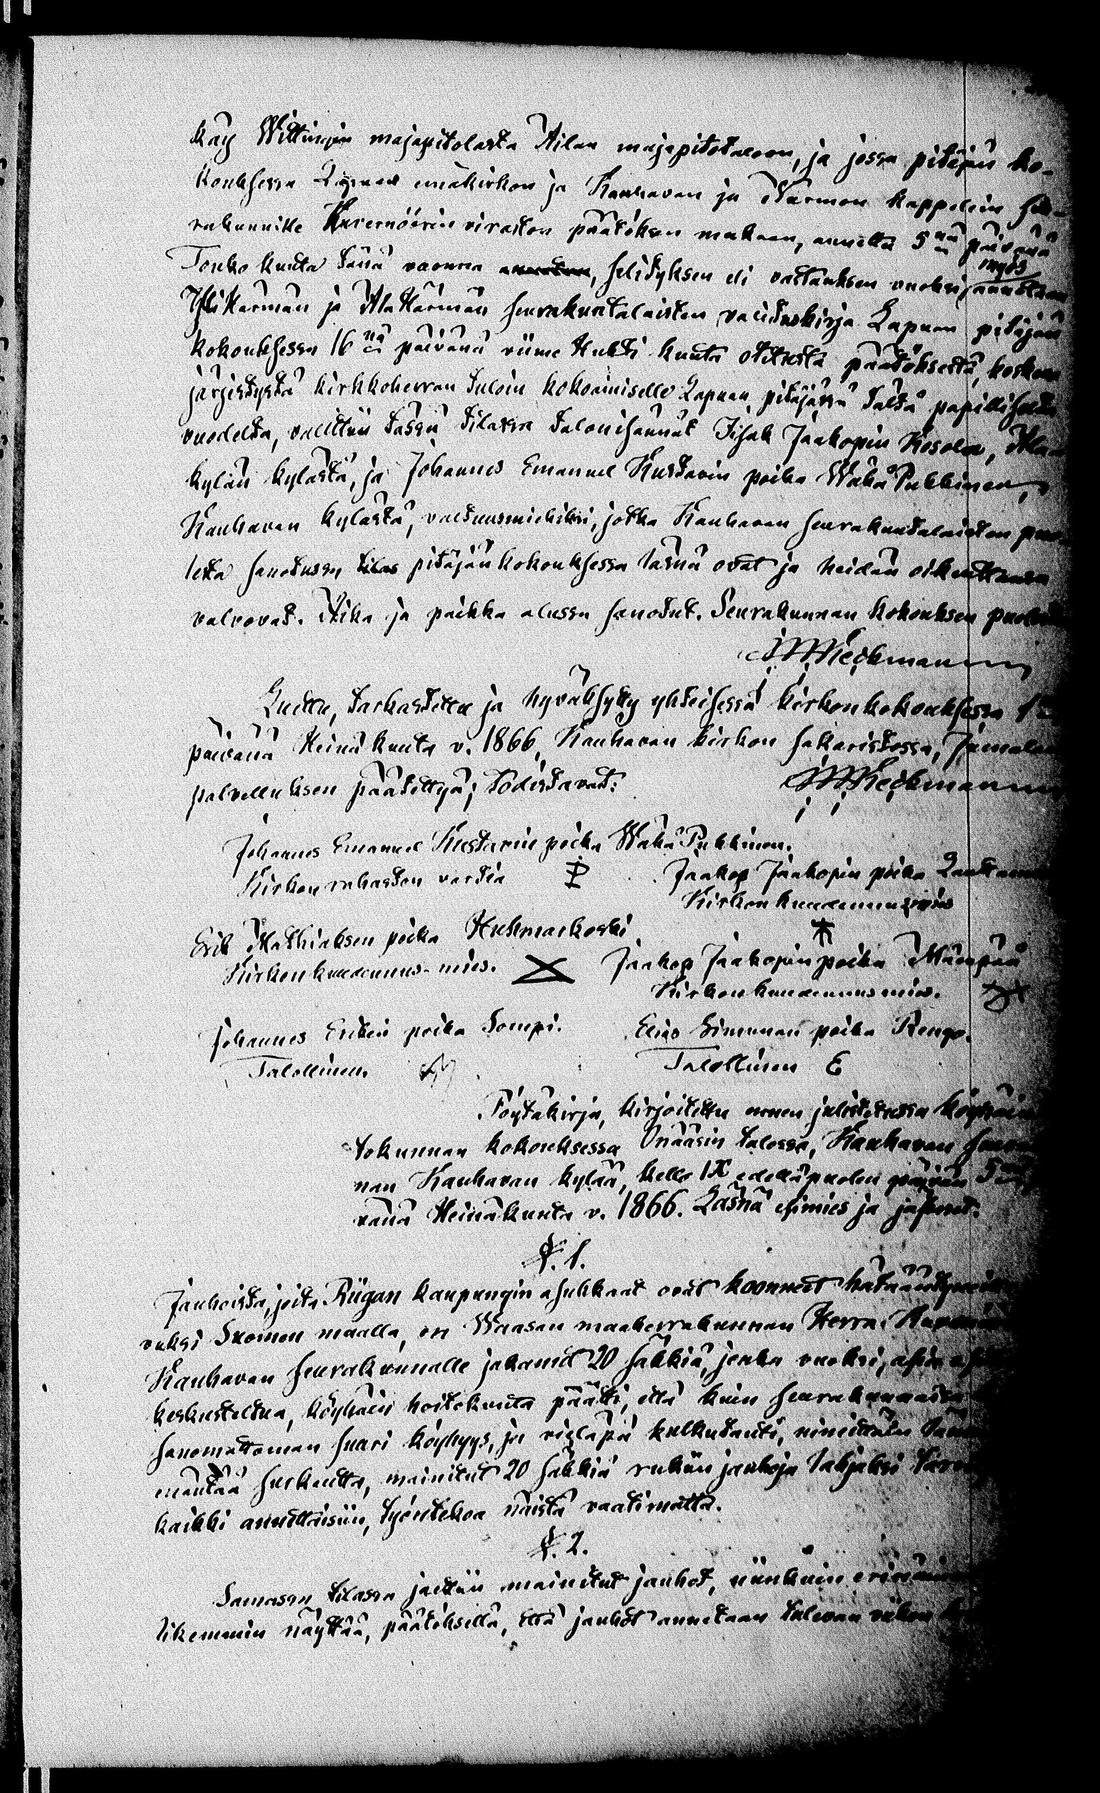 käy Wittingin majapitolasta Ailan majapitotaloon, ja jossa pitäjän ko-
kouksessa Lapuan emäkirkon ja Kauhavan ja Nurmon kappelein seu-
rakunnille Kuvernöörin viraston päätöksen mukaan, annettu 5nä päivänä
Touko kuuta tänä vuonna, selityksen eli vastauksen vuoksi, myös annetaan
Ylikärmän ja Alakärmän seurakuntalaisten valituskirja Lapuan pitäjän
kokouksessa 16nä päivänä viime Huhti kuuta otetusta päätöksestä, koskeva
järjestystä kirkkoherran tuloin kokoamiselle Lapuan pitäjässä tältä papillisesta
vuodelta, valittiin tässä tilassa talonisännät Iisak Jaakopin Kosola, Ala
kylän kylästä, ja Johannes Emanuel Kustavin poika Wähä Pukkinen,
Kauhavan kylästä, valtuusmiehiksi, jotka Kauhavan seurakuntalaisten puo-
lesta sanotussa pitäjän kokouksessa läsnä ovat ja heidän oikeuttansa
valvovat. Aika ja paikka alussa sanotut. Seurakunnan kokouksen puolesta
Luettu, tarkastettu ja hyväksytty yhteisessä kirkonkokouksessa 1
päivänä Heinäkuuta v. 1866, Kauhavan kirkon sakaristossa, Jumalan
palvelluksen päätettyä; todistavat:
Johannes Emanuel Kustavin poika Wähä Pukkinen.
Kirkon rahaston vartia
Jaakop Jaakopin poika
Kirkon kuudennusmies
Erik Mathiaksen poika Huhmarkoski
Kirkon kuudennus-mies.
Jaakop Jaakopin poika Mäenpää
Kirkon kuudennusmies.
Johannes Erikin poika Sompi.
Talollinen.
Elias Simunan poika Rengo.
Talollinen E
Pöytäkirja, kirjoitettu ennen julistetussa köyhäin
tokunnan kokouksessa talossa, Kauhavan seura
nan Kauhavan kylää, kello IX edelläpuolen päivän 5
vänä Heinäkuuta v. 1866. Läsnä esimies ja jäsenet.
§. 1.
Jauhoista, joita Riigan kaupungin asukkaat ovat koonneet hätäätyneitten
vuksi Suomen maalla, on Waasan maaherrakunnan Herra
Kauhavan seurakunnalle jakanut 20 säkkiä, jonka vuoksi, asia
keskusteltua, köyhäin hoitokunta päätti, että kuin seurakunnassa
sanomattoman suuri köyhyys, ja vieläpä kulkutauti, nimittäin
mäntää surkeutta, mainitut 20 säkkiä rukiin jauhoja lahjaksi
kaikki annettaisiin, työntekoa näistä vaatimatta.
§. 2.
Samassa tilassa jaettiin mainitut jauhot, niinkuin
likemmin näyttää, päätöksellä, että jauhot annetaan tulevan viikon